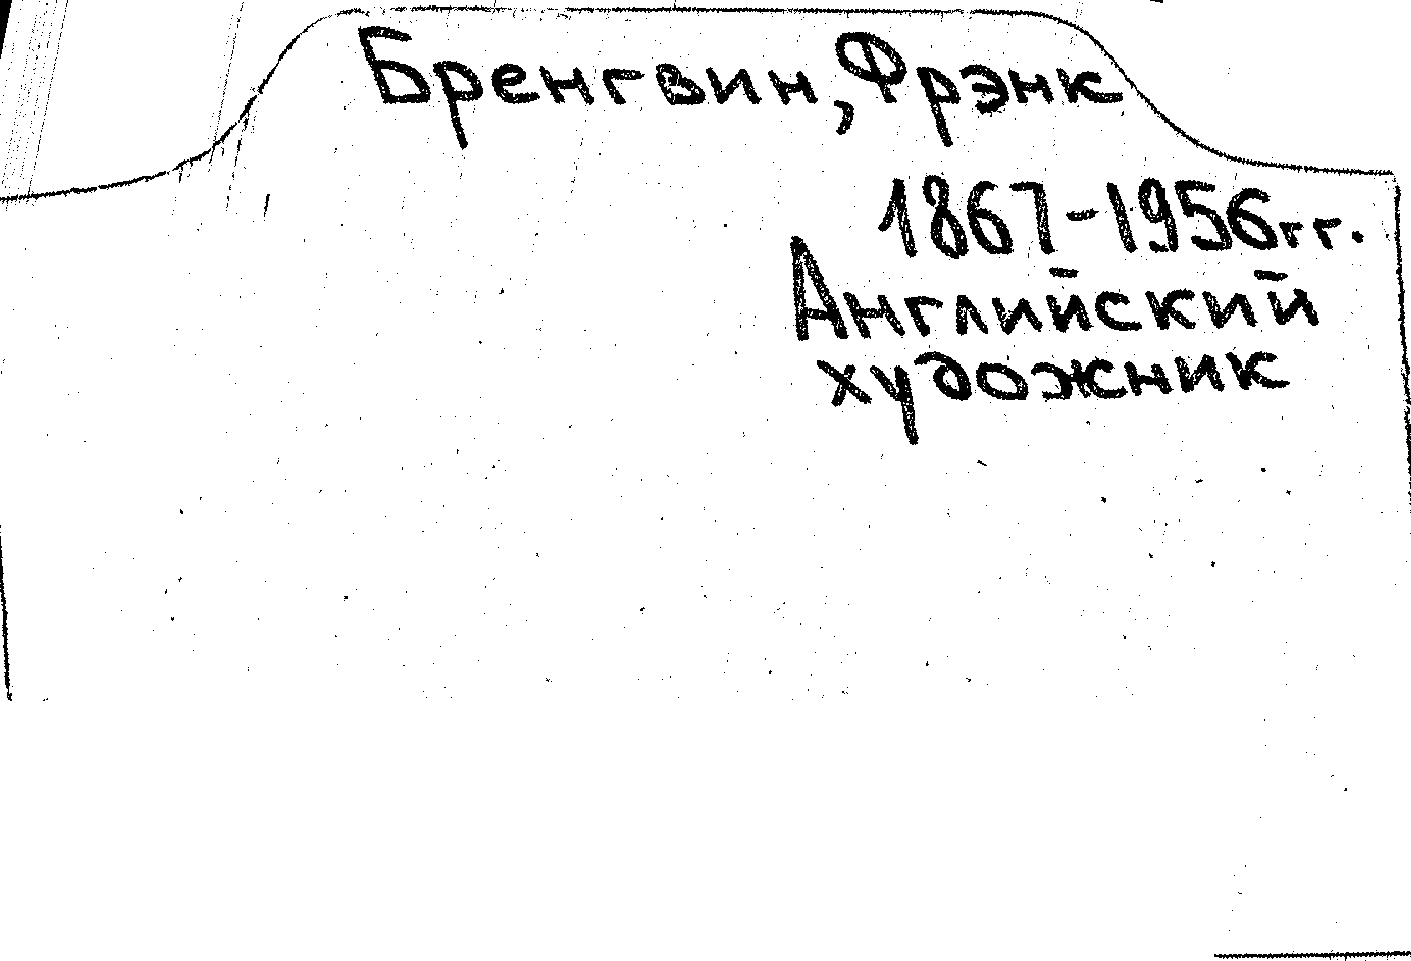 Бренгвин, Фрэнк
1867-1956гг.
Английский
художник